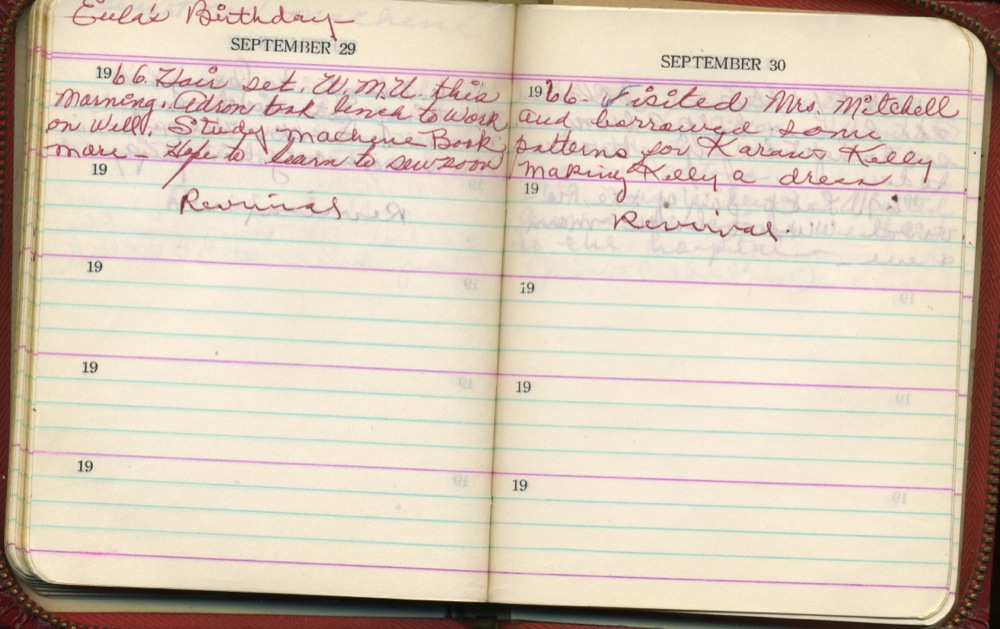 Eula's Birthday
SEPTEMBER 29
1966. Hair set. W.M.U. this
morning. Adron took lunch to work
on well. Study machine Book
more - Hope to learn to sew soon
19
Revival
19
19
19
SEPTEMBER 30
1966 - Visited Mrs. Mitchell
and borrowed some
patterns for Karan & Kelly
making Kelly a dress
19
Revival.
19
19
19